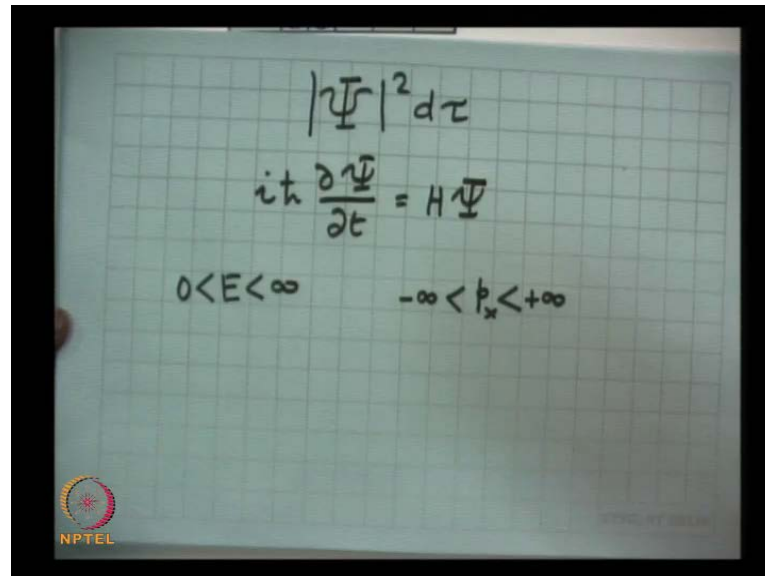 |Ψ|² dτ
iħ ∂Ψ/∂t = HΨ
0 < E < ∞   -∞ < pₓ < +∞
NPTEL